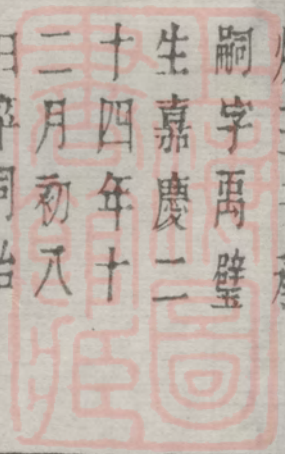 嗣字禹璧
生嘉慶二
十四年十
二月初八